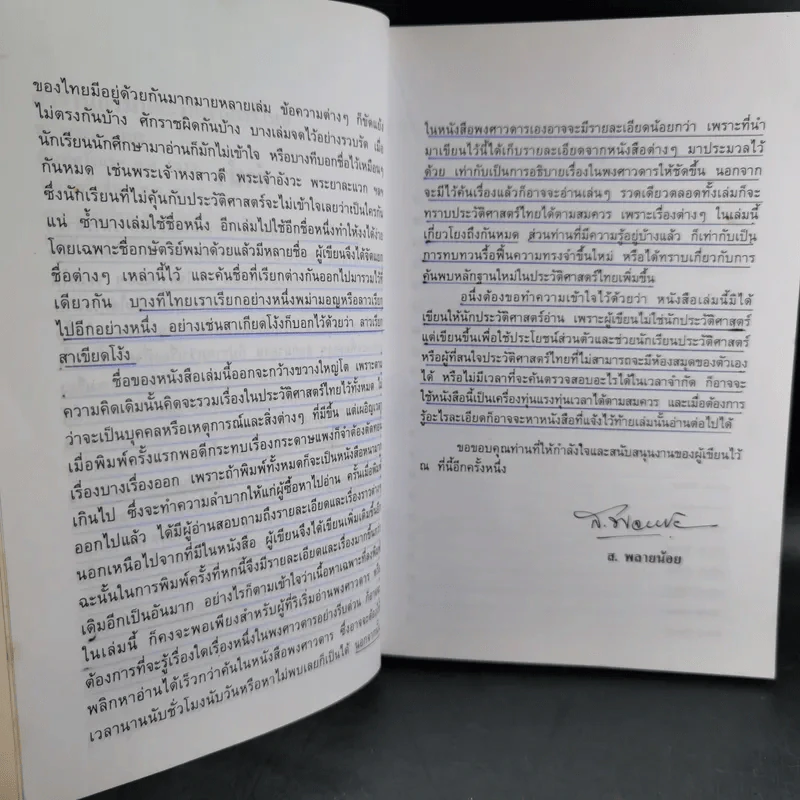 ของไทยมีอยู่ด้วยกันมากมายหลายเล่ม ข้อความต่างๆ ก็ขัดแย้ง
ไม่ตรงกันบ้าง ศักราชผิดกันบ้าง บางเล่มจดไว้อย่างรวบรัด เมื่อ
นักเรียนนักศึกษามาอ่านก็มักไม่เข้าใจ หรือบางทีบอกชื่อไว้เหมือนๆ
กันหมด เช่นพระเจ้าหงสาวดี พระเจ้าอังวะ พระยาละแวก ฯลฯ
ซึ่งนักเรียนที่ไม่คุ้นกับประวัติศาสตร์จะไม่เข้าใจเลยว่าเป็นใครกัน
แน่ ซ้ำบางเล่มใช้ชื่อหนึ่ง อีกเล่มไปใช้อีกชื่อหนึ่งทำให้งงได้ง่าย
โดยเฉพาะชื่อกษัตริย์พม่าด้วยแล้วมีหลายชื่อ ผู้เขียนจึงได้จัดแยก
ชื่อต่างๆ เหล่านี้ไว้ และค้นชื่อที่เรียกต่างกันออกไปมารวมไว้ที่
เดียวกัน บางทีไทยเราเรียกอย่างหนึ่งพม่ามอญหรือลาวเรียก
ไปอีกอย่างหนึ่ง อย่างเช่นสาเกียดโง้งก็บอกไว้ด้วยว่า ลาวเรียก
สาเขียดโง้ง
ชื่อของหนังสือเล่มนี้ออกจะกว้างขวางใหญ่โต เพราะตาม
ความคิดเดิมนั้นคิดจะรวมเรื่องในประวัติศาสตร์ไทยไว้ทั้งหมด ไม่
ว่าจะเป็นบุคคลหรือเหตุการณ์และสิ่งต่างๆ ที่มีขึ้น แต่เผอิญเวลา
เมื่อพิมพ์ครั้งแรกพอดีกระทบเรื่องกระดาษแพงก็จำต้องตัดทอน
เรื่องบางเรื่องออก เพราะถ้าพิมพ์ทั้งหมดก็จะเป็นหนังสือหนามาก
เกินไป ซึ่งจะทำความลำบากให้แก่ผู้ซื้อหาไปอ่าน ครั้นเมื่อพิมพ์
ออกไปแล้ว ได้มีผู้อ่านสอบถามถึงรายละเอียดและเรื่องราวต่างๆ
นอกเหนือไปจากที่มีในหนังสือ ผู้เขียนจึงได้เขียนเพิ่มเติมขึ้นอีก
ฉะนั้นในการพิมพ์ครั้งที่หกนี้จึงมีรายละเอียดและเรื่องมากขึ้นกว่า
เดิมอีกเป็นอันมาก อย่างไรก็ตามเข้าใจว่าเนื้อหาเฉพาะที่
ในเล่มนี้ ก็คงจะพอเพียงสำหรับผู้ที่ริเริ่มอ่านพงศาวดาร หรือ
ต้องการที่จะรู้เรื่องใดเรื่องหนึ่งในพงศาวดารอย่างรีบด่วน ก็อาจจะ
พลิกหาอ่านได้เร็วกว่าค้นในหนังสือพงศาวดาร ซึ่งอาจจะต้อง
เวลานานนับชั่วโมงนับวันหรือหาไม่พบเลยก็เป็นได้ นอกจากนั้น
ในหนังสือพงศาวดารเองอาจจะมีรายละเอียดน้อยกว่า เพราะที่นำ
มาเขียนไว้นี้ได้เก็บรายละเอียดจากหนังสือต่างๆ มาประมวลไว้
ด้วย เท่ากับเป็นการอธิบายเรื่องในพงศาวดารให้ชัดขึ้น นอกจาก
จะมีไว้ค้นเรื่องแล้วก็อาจจะอ่านเล่นๆ รวดเดียวตลอดทั้งเล่มก็จะ
ทราบประวัติศาสตร์ไทยได้ตามสมควร เพราะเรื่องต่างๆ ในเล่มนี้
เกี่ยวโยงถึงกันหมด ส่วนท่านที่มีความรู้อยู่บ้างแล้ว ก็เท่ากับเป็น
การทบทวนรื้อฟื้นความทรงจำขึ้นใหม่ หรือได้ทราบเกี่ยวกับการ
ค้นพบหลักฐานใหม่ในประวัติศาสตร์ไทยเพิ่มขึ้น
อนึ่งต้องขอทำความเข้าใจไว้ด้วยว่า หนังสือเล่มนี้มิได้
เขียนให้นักประวัติศาสตร์อ่าน เพราะผู้เขียนไม่ใช่นักประวัติศาสตร์
แต่เขียนขึ้นเพื่อใช้ประโยชน์ส่วนตัวและช่วยนักเรียนประวัติศาสตร์
หรือผู้ที่สนใจประวัติศาสตร์ไทยที่ไม่สามารถจะมีห้องสมุดของตัวเอง
ได้ หรือไม่มีเวลาที่จะค้นตรวจสอบอะไรได้ในเวลาจำกัด ก็อาจจะ
ใช้หนังสือนี้เป็นเครื่องทุ่นแรงทุ่นเวลาได้ตามสมควร และเมื่อต้องการ
รู้อะไรละเอียดก็อาจจะหาหนังสือที่แจ้งไว้ท้ายเล่มนั้นอ่านต่อไปได้
ขอขอบคุณท่านที่ให้กำลังใจและสนับสนุนงานของผู้เขียนไว้
ณ ที่นี้อีกครั้งหนึ่ง
ส. พลายน้อย